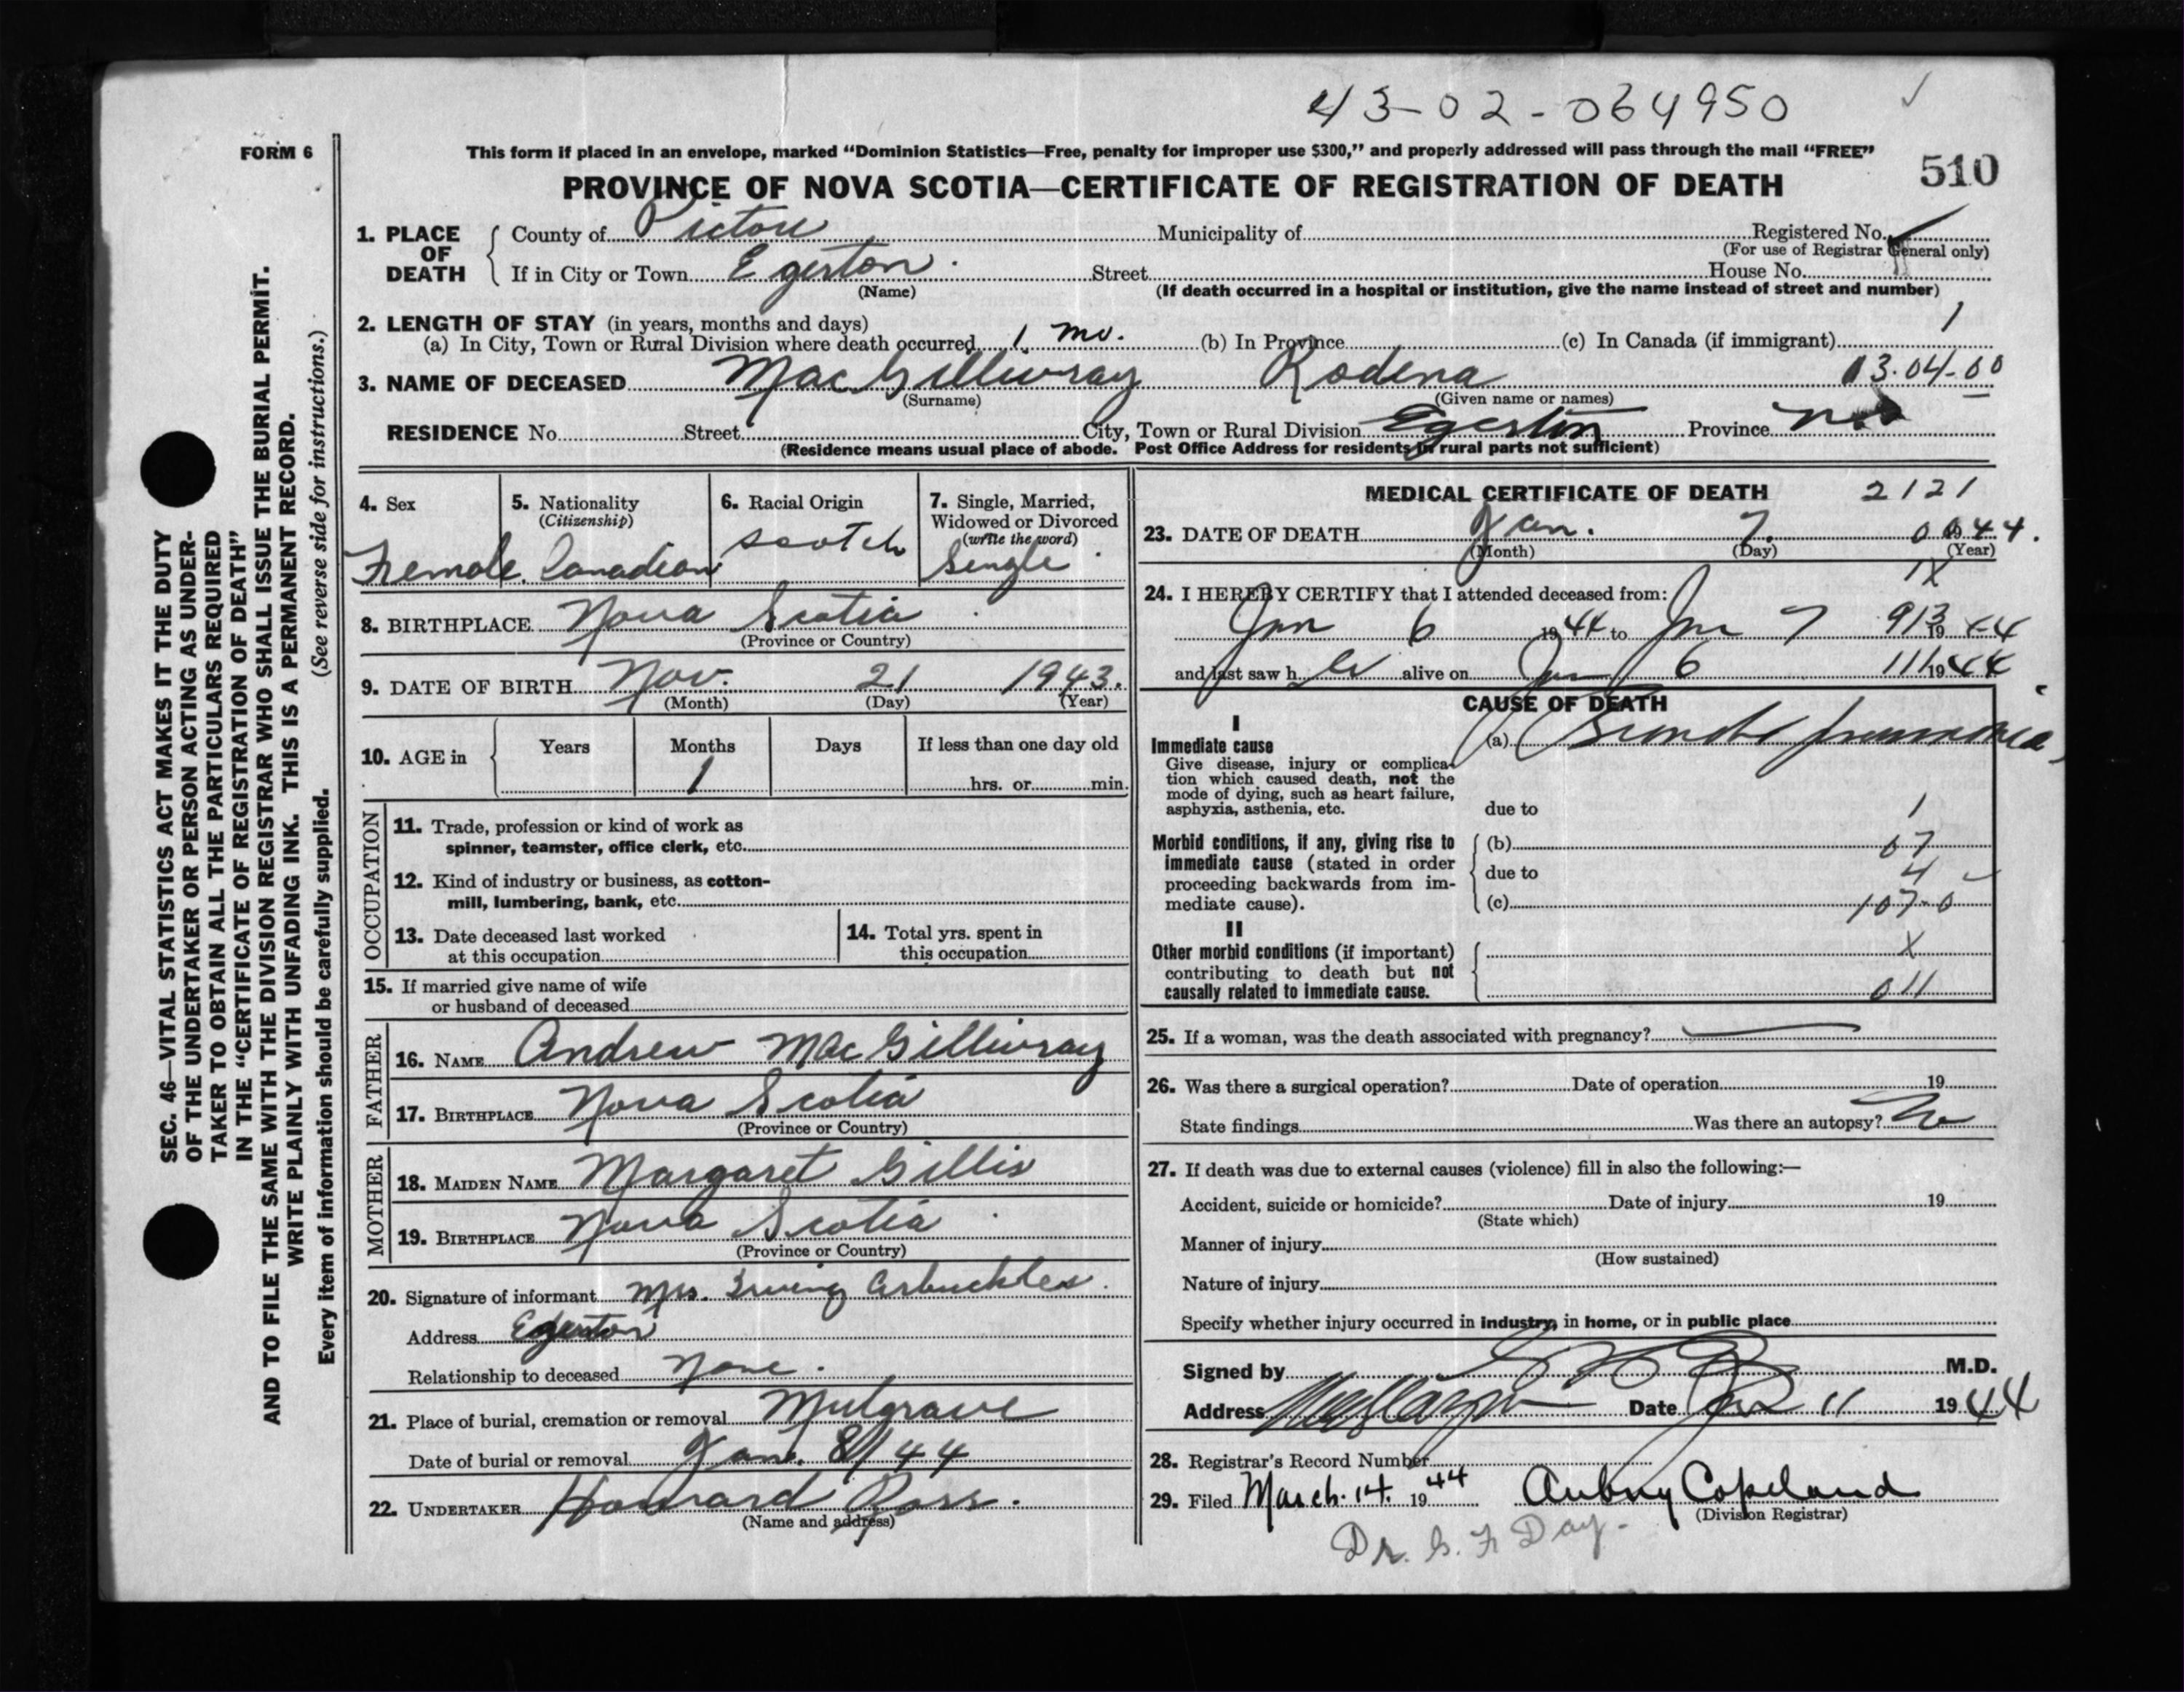 43-02-064950
FORM 6
This form if placed in an envelope, marked “Dominion Statistics—Free, penalty for improper use $300,” and properly addressed will pass through the mail “FREE”
510
PROVINCE OF NOVA SCOTIA—CERTIFICATE OF REGISTRATION OF DEATH
SEC. 46—VITAL STATISTICS ACT MAKES IT THE DUTY
OF THE UNDERTAKER OR PERSON ACTING AS UNDER-
TAKER TO OBTAIN ALL THE PARTICULARS REQUIRED
IN THE “CERTIFICATE OF REGISTRATION OF DEATH”
AND TO FILE THE SAME WITH THE DIVISION REGISTRAR WHO SHALL ISSUE THE BURIAL PERMIT.
WRITE PLAINLY WITH UNFADING INK. THIS IS A PERMANENT RECORD.
(See reverse side for instructions.)
Every item of information should be carefully supplied.
1. PLACE OF DEATH
County of Pictou Municipality of Registered No.
(For use of Registrar General only)
If in City or Town Egerton. Street House No.
(Name) (If death occurred in a hospital or institution, give the name instead of street and number)
2. LENGTH OF STAY (in years, months and days) 1
(a) In City, Town or Rural Division where death occurred 1 mo. (b) In Province (c) In Canada (if immigrant)
3. NAME OF DECEASED MacGillivray Rodena 03.04-00
(Surname) (Given name or names)
RESIDENCE No. Street City, Town or Rural Division Egerton Province N.S
(Residence means usual place of abode. Post Office Address for residents in rural parts not sufficient)
4. Sex 5. Nationality (Citizenship) 6. Racial Origin 7. Single, Married, Widowed or Divorced (write the word)
Female. Canadian Scotch Single.
8. BIRTHPLACE Nova Scotia
(Province or Country)
9. DATE OF BIRTH Nov. 21 1943.
(Month) (Day) (Year)
10. AGE in Years Months Days If less than one day old
1 hrs. or min.
OCCUPATION
11. Trade, profession or kind of work as
spinner, teamster, office clerk, etc.
12. Kind of industry or business, as cotton-
mill, lumbering, bank, etc.
13. Date deceased last worked
at this occupation
14. Total yrs. spent in
this occupation
15. If married give name of wife
or husband of deceased
FATHER
16. NAME Andrew MacGillivray
17. BIRTHPLACE Nova Scotia
(Province or Country)
MOTHER
18. MAIDEN NAME Margaret Gillis
19. BIRTHPLACE Nova Scotia
(Province or Country)
20. Signature of informant Mrs. Irving Arbuckles.
Address Egerton
Relationship to deceased None.
21. Place of burial, cremation or removal Mulgrave
Date of burial or removal Jan. 8/44
22. UNDERTAKER Howard Ross.
(Name and address)
MEDICAL CERTIFICATE OF DEATH 2121
23. DATE OF DEATH Jan. 7. 1944.
(Month) (Day) (Year)
1X
24. I HEREBY CERTIFY that I attended deceased from:
Jan 6 1944 to Jan 7 913 1944
and last saw h er alive on Jan 6 111 1944
CAUSE OF DEATH
I
Immediate cause (a) Broncho pneumonia
Give disease, injury or complica-
tion which caused death, not the
mode of dying, such as heart failure,
asphyxia, asthenia, etc. due to 1
Morbid conditions, if any, giving rise to (b) 07
immediate cause (stated in order
proceeding backwards from im- due to 4
mediate cause). (c) 107-0
II
Other morbid conditions (if important) X
contributing to death but not
causally related to immediate cause. 011
25. If a woman, was the death associated with pregnancy?
26. Was there a surgical operation? Date of operation 19
State findings Was there an autopsy? No
27. If death was due to external causes (violence) fill in also the following:—
Accident, suicide or homicide? Date of injury 19
(State which)
Manner of injury
(How sustained)
Nature of injury
Specify whether injury occurred in industry, in home, or in public place
Signed by M.D.
Address Date Jan 11 1944
28. Registrar's Record Number
29. Filed March 14. 1944 Aubrey Copeland
(Division Registrar)
Dr. G. F Day.